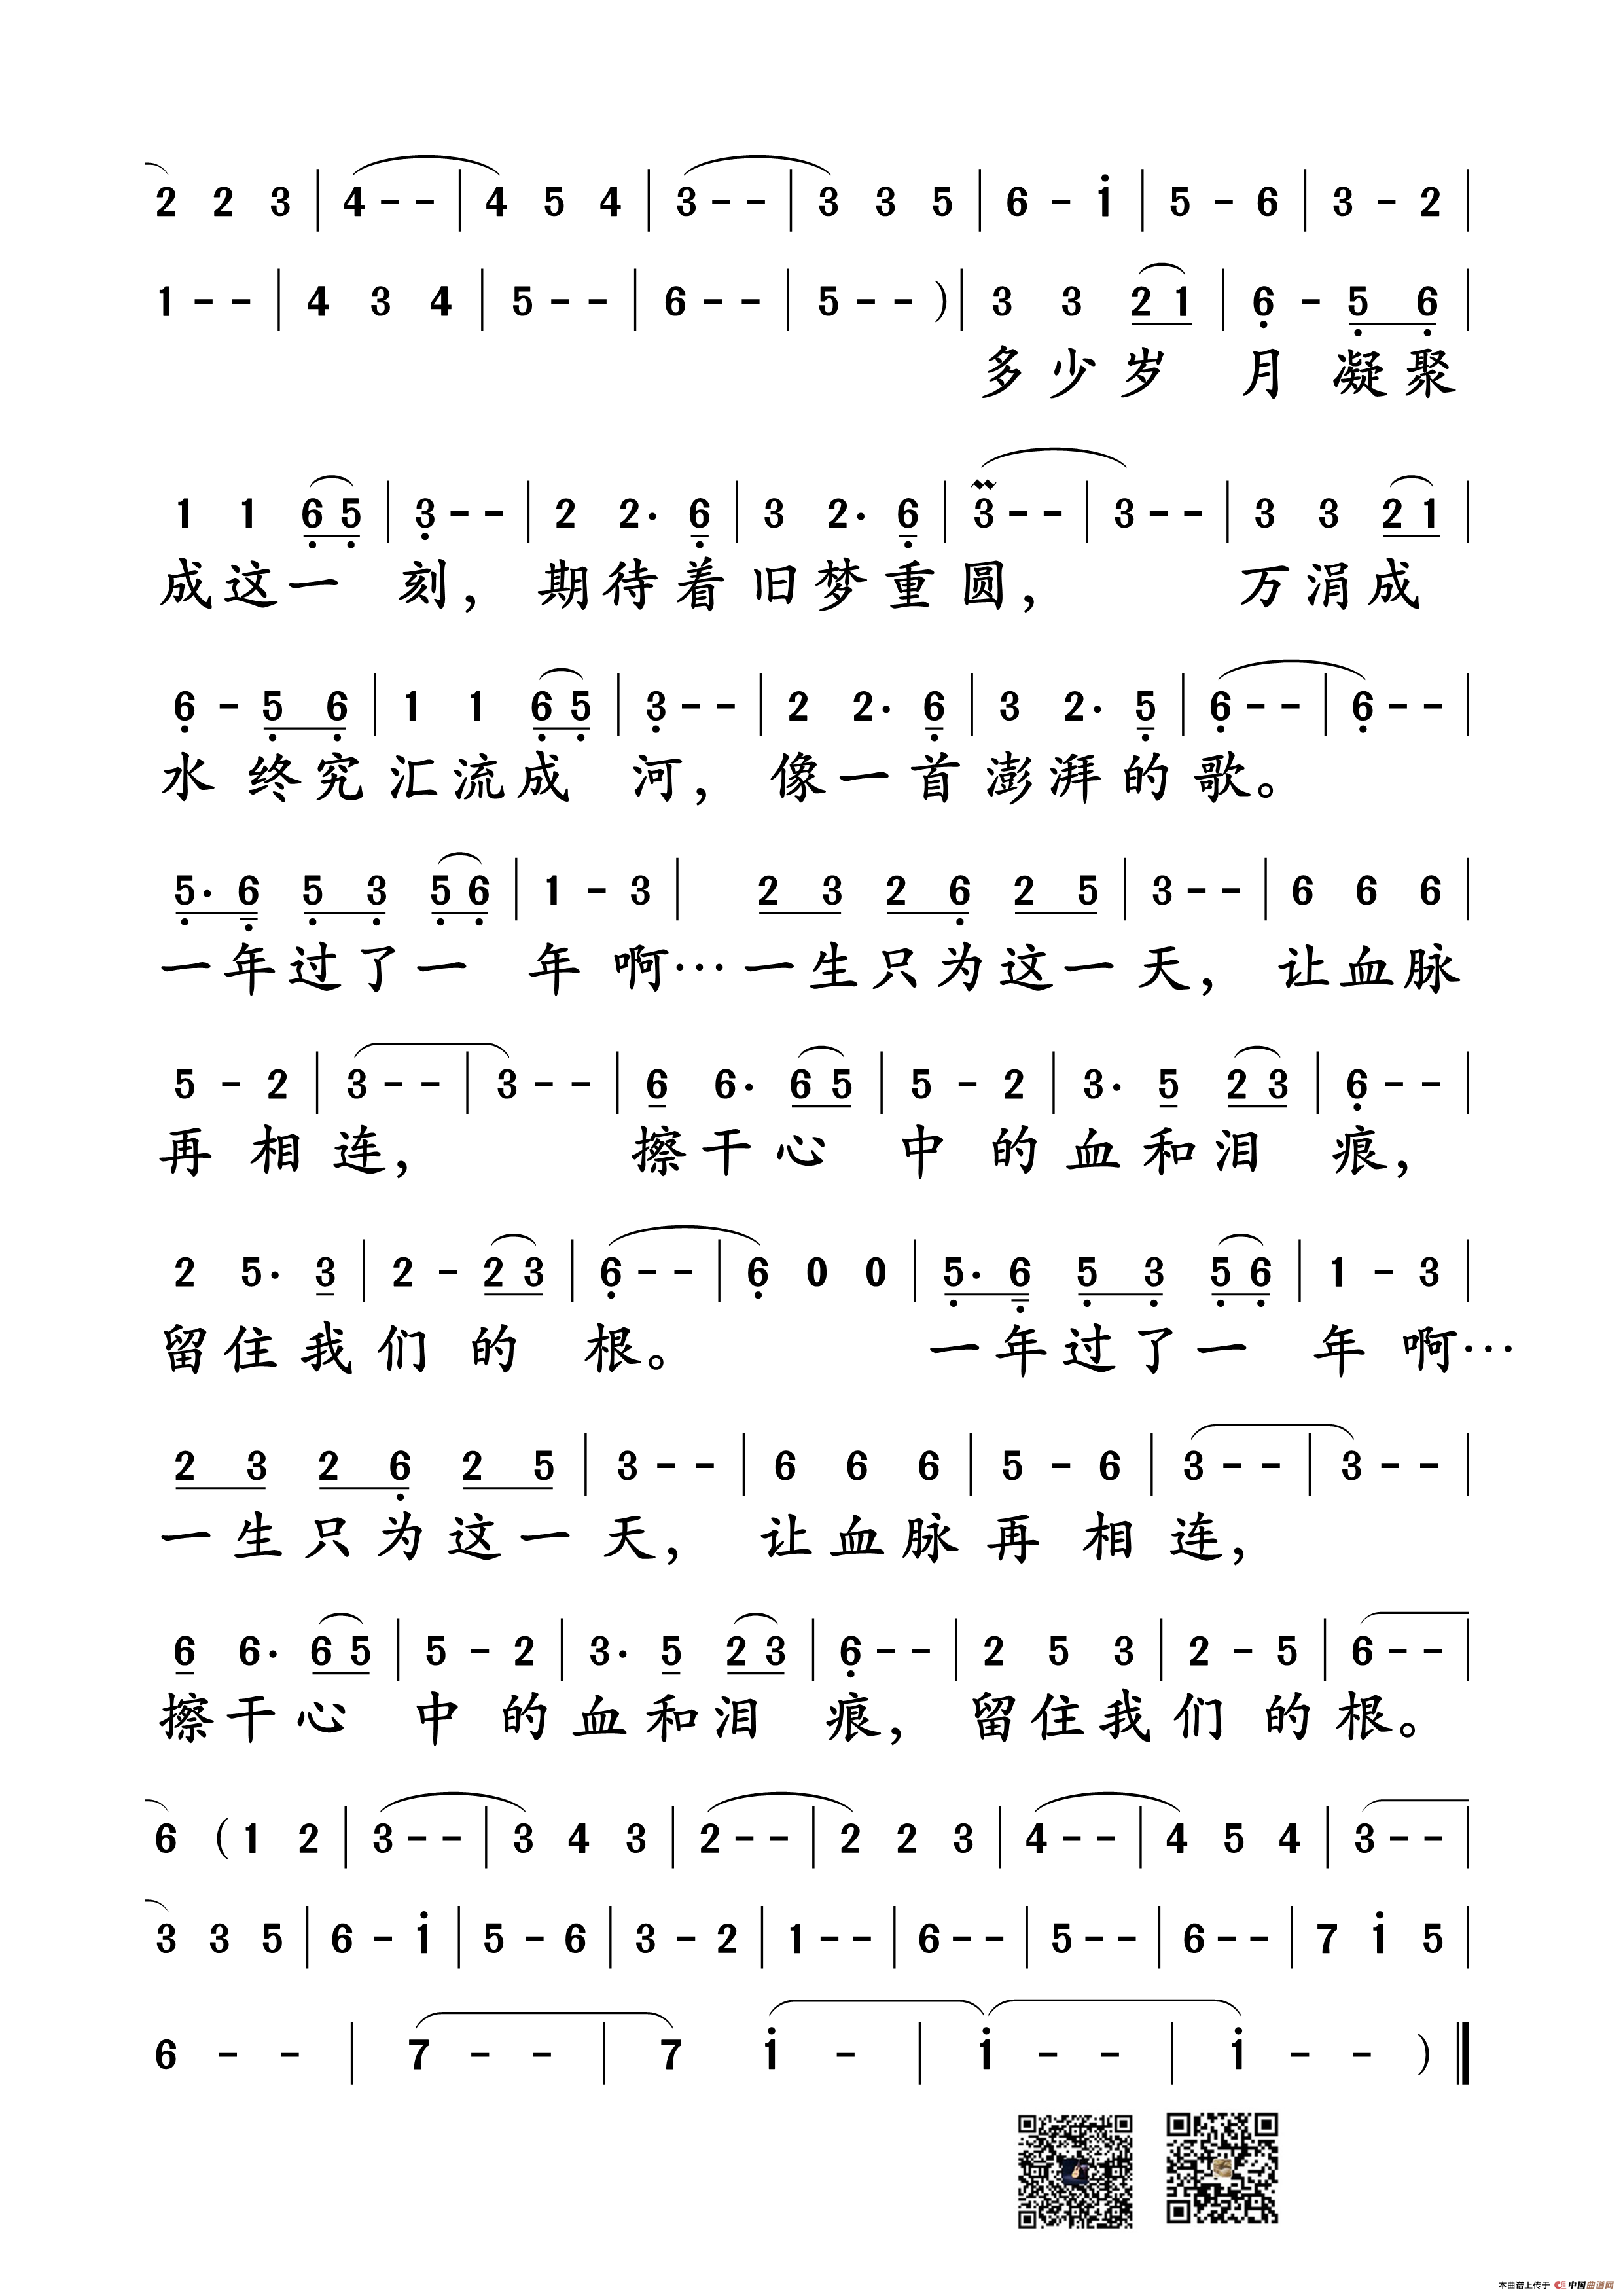 2 2 3 | 4 - - | 4 5 4 | 3 - - | 3 3 5 | 6 - i | 5 - 6 | 3 - 2 |
1 - - | 4 3 4 | 5 - - | 6 - - | 5 - - ) | 3 3 2 1 | 6 - 5 6 |
多少岁 月凝聚
1 1 6 5 | 3 - - | 2 2· 6 | 3 2· 6 | 3 - - | 3 - - | 3 3 2 1 |
成这一 刻，期待着旧梦重圆， 万涓成
6 - 5 6 | 1 1 6 5 | 3 - - | 2 2· 6 | 3 2· 5 | 6 - - | 6 - - |
水 终究汇流成 河，像一首澎湃的歌。
5· 6 5 3 5 6 | 1 - 3 | 2 3 2 6 2 5 | 3 - - | 6 6 6 |
一年过了一 年啊…一生只为这一天，让血脉
5 - 2 | 3 - - | 3 - - | 6 6· 6 5 | 5 - 2 | 3· 5 2 3 | 6 - - |
再相连， 擦干心 中的血和泪 痕，
2 5· 3 | 2 - 2 3 | 6 - - | 6 0 0 | 5· 6 5 3 5 6 | 1 - 3 |
留住我们的 根。 一年过了一 年啊…
2 3 2 6 2 5 | 3 - - | 6 6 6 | 5 - 6 | 3 - - | 3 - - |
一生只为这一天，让血脉再相连，
6 6· 6 5 | 5 - 2 | 3· 5 2 3 | 6 - - | 2 5 3 | 2 - 5 | 6 - - |
擦干心 中的血和泪 痕，留住我们的根。
6 ( 1 2 | 3 - - | 3 4 3 | 2 - - | 2 2 3 | 4 - - | 4 5 4 | 3 - - |
3 3 5 | 6 - i | 5 - 6 | 3 - 2 | 1 - - | 6 - - | 5 - - | 6 - - | 7 i 5 |
6 - - | 7 - - | 7 i - | i - - | i - - ) ||
本曲谱上传于 中国曲谱网